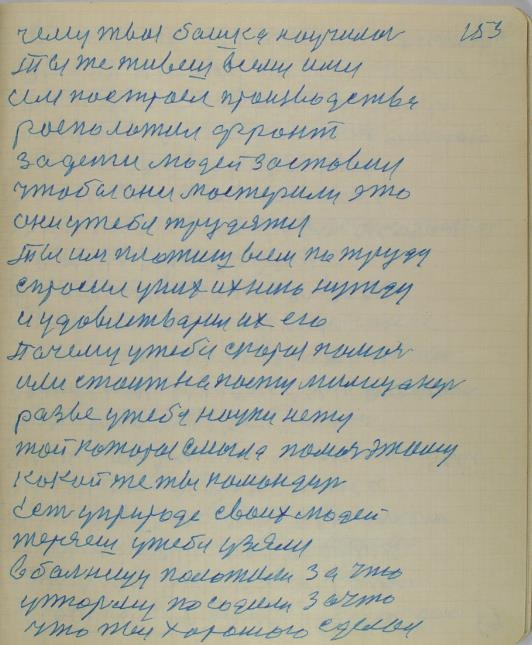 чему твоя башка научилас 153
Ты же живеш всеми ими
им построел производства
росположил фронт
за дети людей заставил
чтобы они мостерили это
они утебя трудятся
Ты им платиш всем по труду
спросил уних ихнию нужду
и удовлетварил их его
Почему утебя скорая помощ
или стоит на посту милицанер
разве утебя науки нету
той которая смогла помоч этому
какой же ты командир
без уприроде своих людей
теряеш утебя узяли
в балницу положили за что
утюрму посодили за что
что ты хорошого сделал